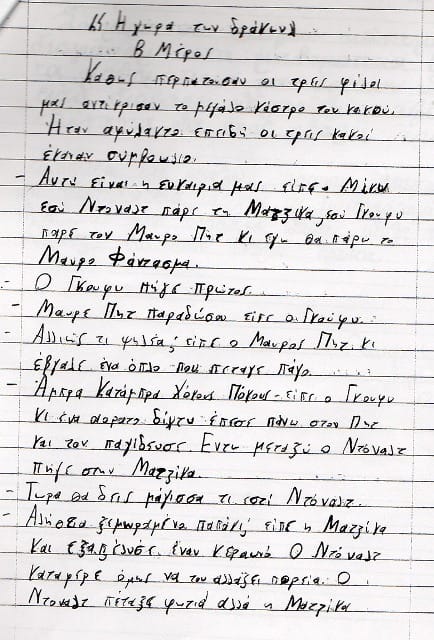 Η χώρα των δράκων
Β Μέρος
Καθώς περπατούσαν οι τρεις φίλοι
μας αντίκρισαν το μεγάλο κάστρο του κακού.
Ήταν αφύλακτο επειδή οι τρεις κακοί
έκαναν συμβούλιο.
- Αυτή είναι η ευκαιρία μας είπε ο Μίκυ
εσύ Ντόναλτ πάρε τη Μάτζικα εσύ Γκούφυ
παρε τον Μαυρο Πητ κι εγω θα πάρω το
Μαυρο Φάντασμα.
- Ο Γκούφυ πήγε πρώτος.
- Μαυρε Πητ παραδώσου είπε ο Γκούφυ.
- Αλλιώς τι ψηλέα; είπε ο Μαυρος Πητ κι
έβγαλε ένα όπλο που πεταγε πάγο.
- Άμπρα Κατάμπρα Χόκους Πόκους - είπε ο Γκουφυ
κι ένα αορατο δίχτυ έπεσε πάνω στον Πητ
και τον παγίδευσε. Εντω μεταξύ ο Ντόναλτ
πήγε στην Ματζικα.
- Τωρα θα δεις μάγισσα τι εστί Ντόναλτ.
- Αλήθεια ξεμωραμένο παπάκι; είπε η Ματζικα
και εξαπέλυσε έναν κεραυνό Ο Ντόναλτ
κατάφερε όμως να του αλλάξει πορεία. Ο
Ντοναλτ πέταξε φωτιά αλλά η Ματζικα